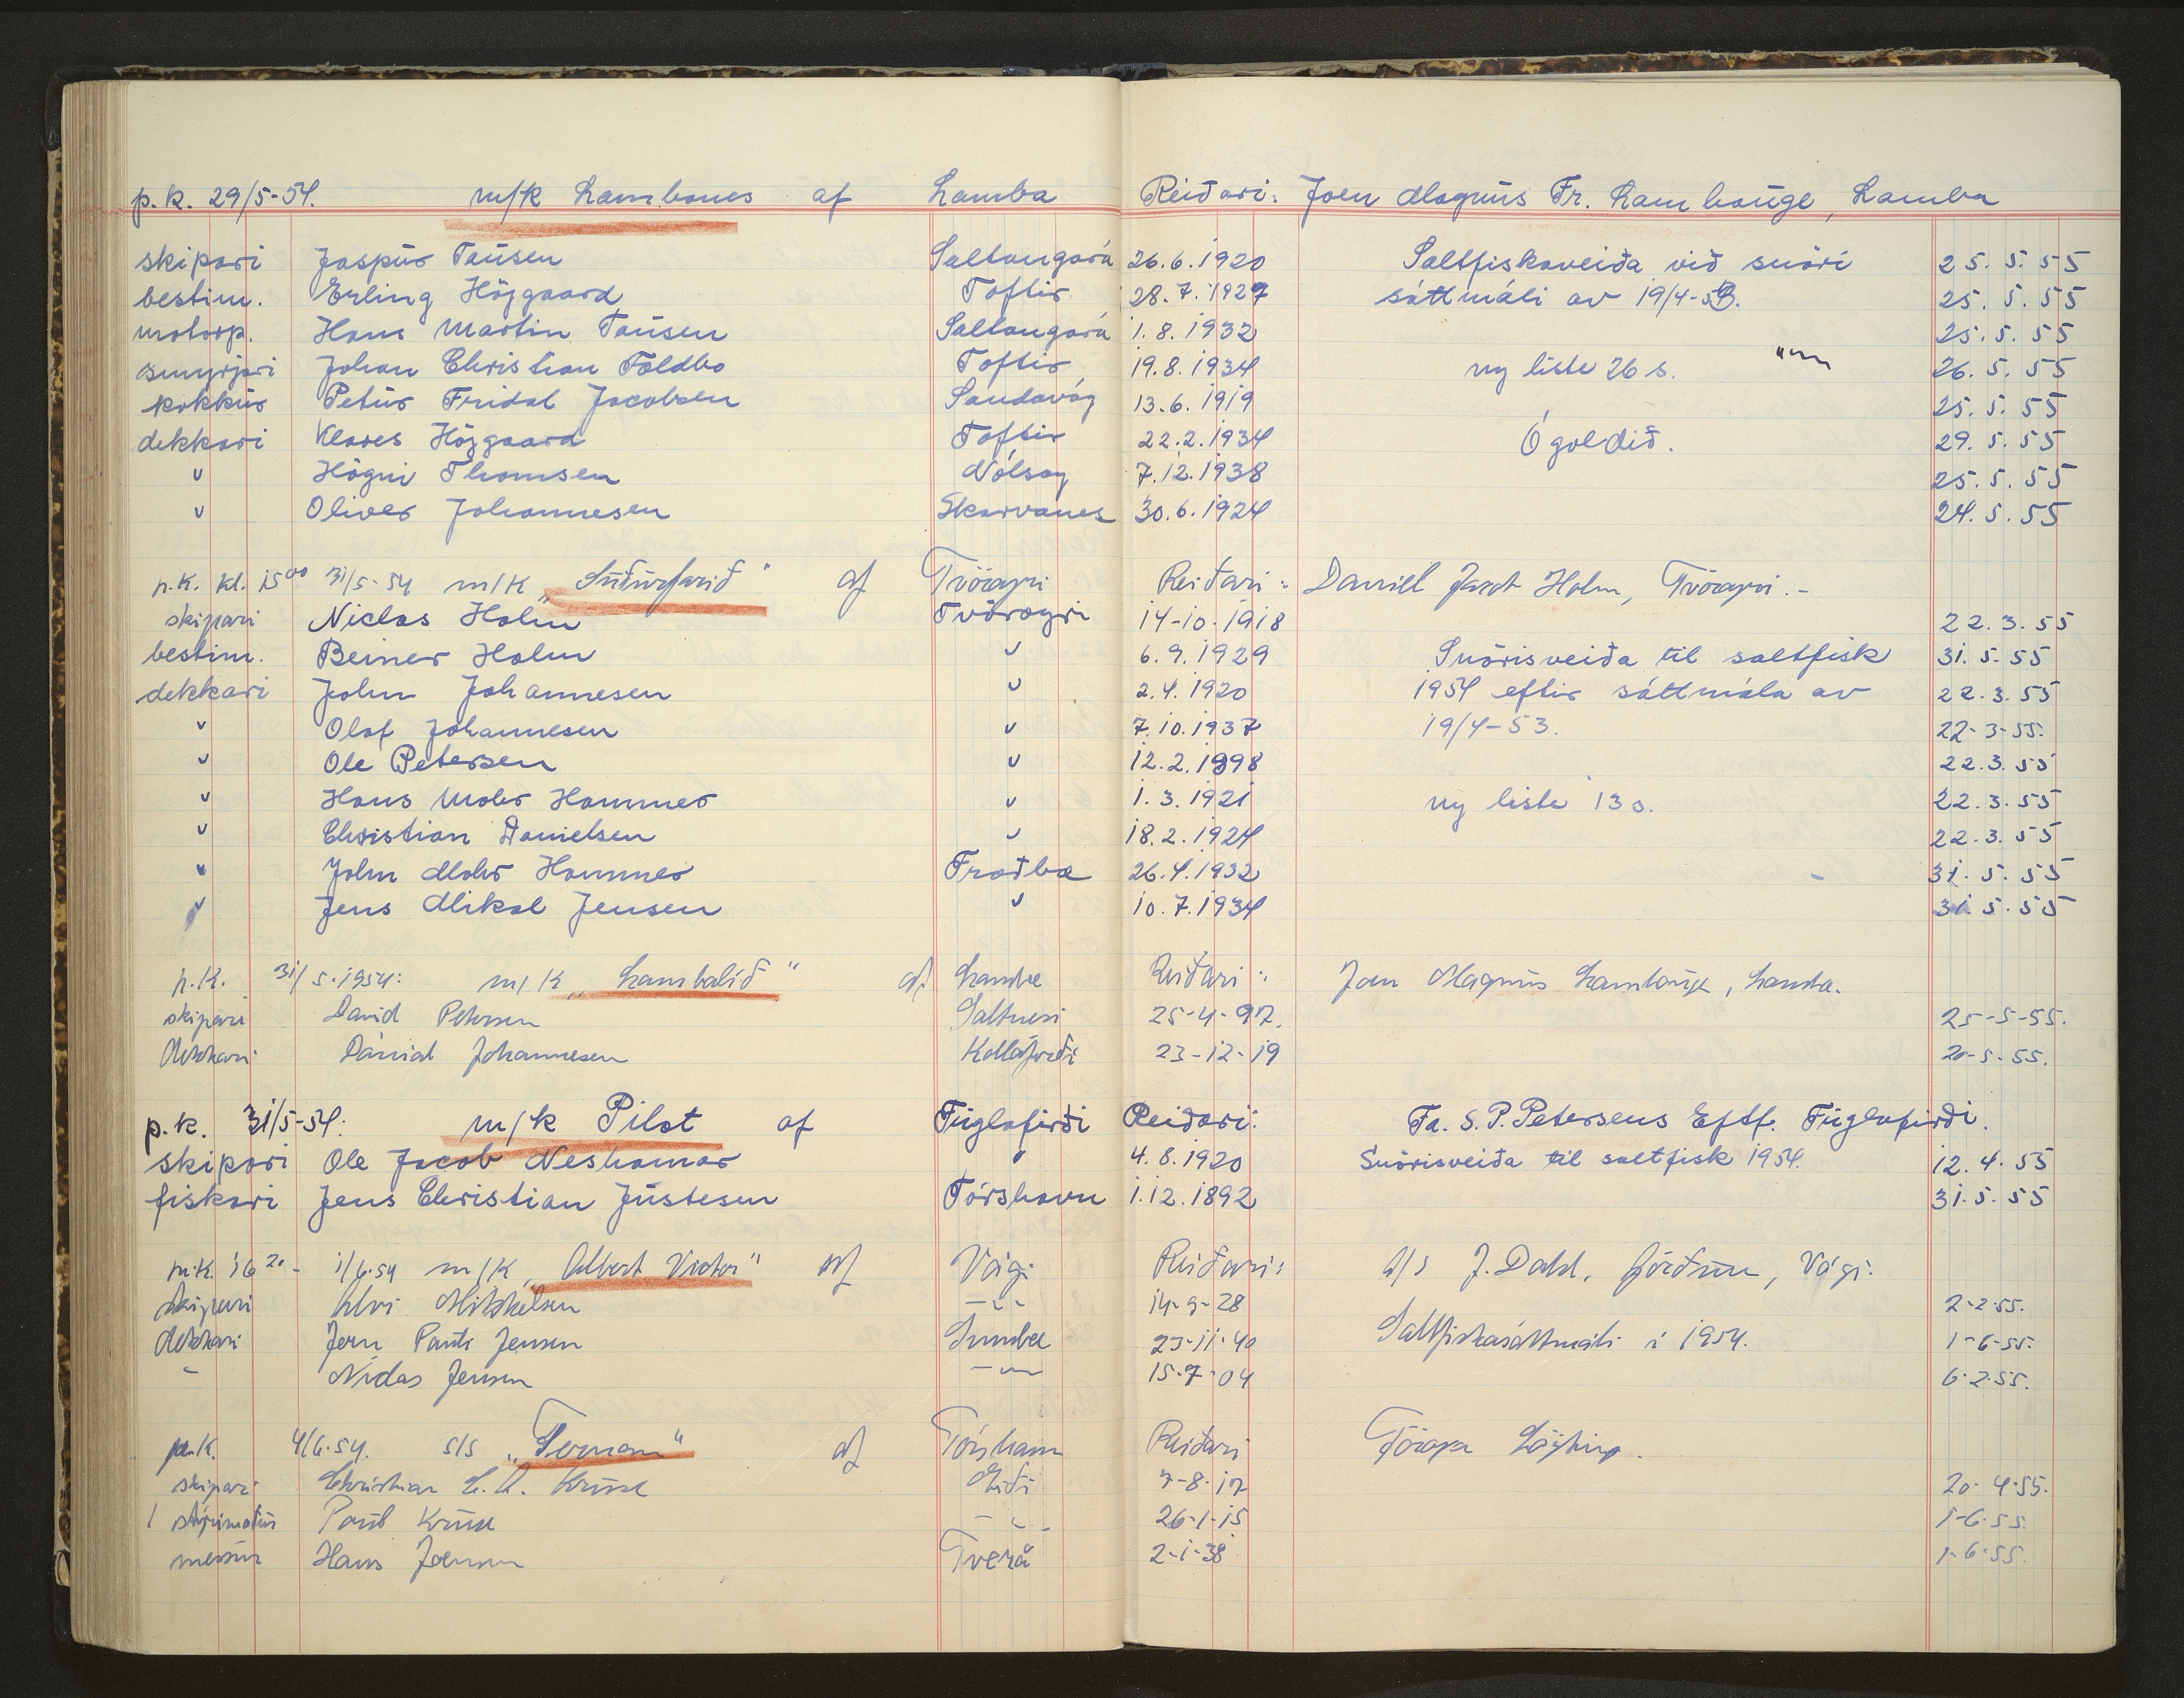 p.k. 29/5-54. m/k Lambanes af Lamba Reiðari: Joen Magnus Fr. Lamhauge, Lamba
skipari Jaspur Tausen Saltangará 26.6.1920 Saltfiskaveiða við snøri 25.5.55
bestim. Erling Højgaard Toftir 28.7.1927 sáttmáli av 19/4-53. 25.5.55
motorp. Hans Martin Tausen Saltangará 1.8.1932 25.5.55
smyrjari Johan Christian Foldbo Toftir 19.8.1934 ny liste 26 s. 26.5.55
kokkur Petur Fridal Jacobsen Sandavág 13.6.1919 25.5.55
dekkari Klares Højgaard Toftir 22.2.1934 Ógoldið. 29.5.55
" Høgni Thomsen Nólsoy 7.12.1938 25.5.55
" Oliver Johannesen Skarvanes 30.6.1924 24.5.55
p.k. kl. 15⁰⁰ 31/5-54 m/k „Suðurfarið" af Tvöroyri Reiðari: Daniel Jacob Holm, Tvöroyri.-
skipari Niclas Holm Tvöroyri 14-10-1918 22.3.55
bestim. Beiner Holm " 6.9.1929 Snørisveiða til saltfisk 31.5.55
dekkari John Johannesen " 2.4.1920 1954 eftir sáttmála av 22.3.55
" Olaf Johannesen " 7.10.1937 19/4-53. 22-3-55.
" Ole Petersen " 12.2.1898 22.3.55
" Hans Mohr Hammer " 1.3.1921 ny liste 13 s. 22.3.55
" Christian Danielsen " 18.2.1924 22.3.55
" John Mohr Hammer Froðba 26.4.1932 - 31.5.55
" Jens Mikal Jensen " 10.7.1934 31.5.55
p.k. 31/5-1954: m/k „Lambalið" af Lamba Reiðari: Joen Magnus Lamhauge, Lamba.
skipari David Petersen Saltnesi 25-4-97. 25-5-55.
dekkari Dánial Johannesen Kollafirði 23-12-19 20-5-55.
p.k. 31/5-54: m/k Pilot af Fuglafirði Reiðari: Fa. S. P. Petersens Eftf. Fuglafirði.
skipari Ole Jacob Neshamar " 4.8.1920 Snørisveiða til saltfisk 1954. 12.4.55
fiskari Jens Christian Justesen Tórshavn 1.12.1892 31.5.55
p.k. 16²⁰ - 1/6-54 m/k „Albert Victor" af Vági Reiðari: A/s J. Dahl, Vági.
skipari Mikkelsen -"- 14-9-28 2-2-55.
dekkari Jørn Pauli Jensen Sumba 23-11-40 Saltfiskasáttmáli í 1954. 1-6-55.
- Niclas Jensen -"- 15-7-04 6-2-55.
p.k. 4/6-54. s/s „Ternan" af Tórshavn Reiðari Föroya Lögting.
skipari Christian Kruse Eiði 7-8-17 20-4-55.
1 stýrimaður Paul Kruse -"- 26-1-15 1-6-55.
messur Hans Joensen Tverá 2-1-38 1-6-55.